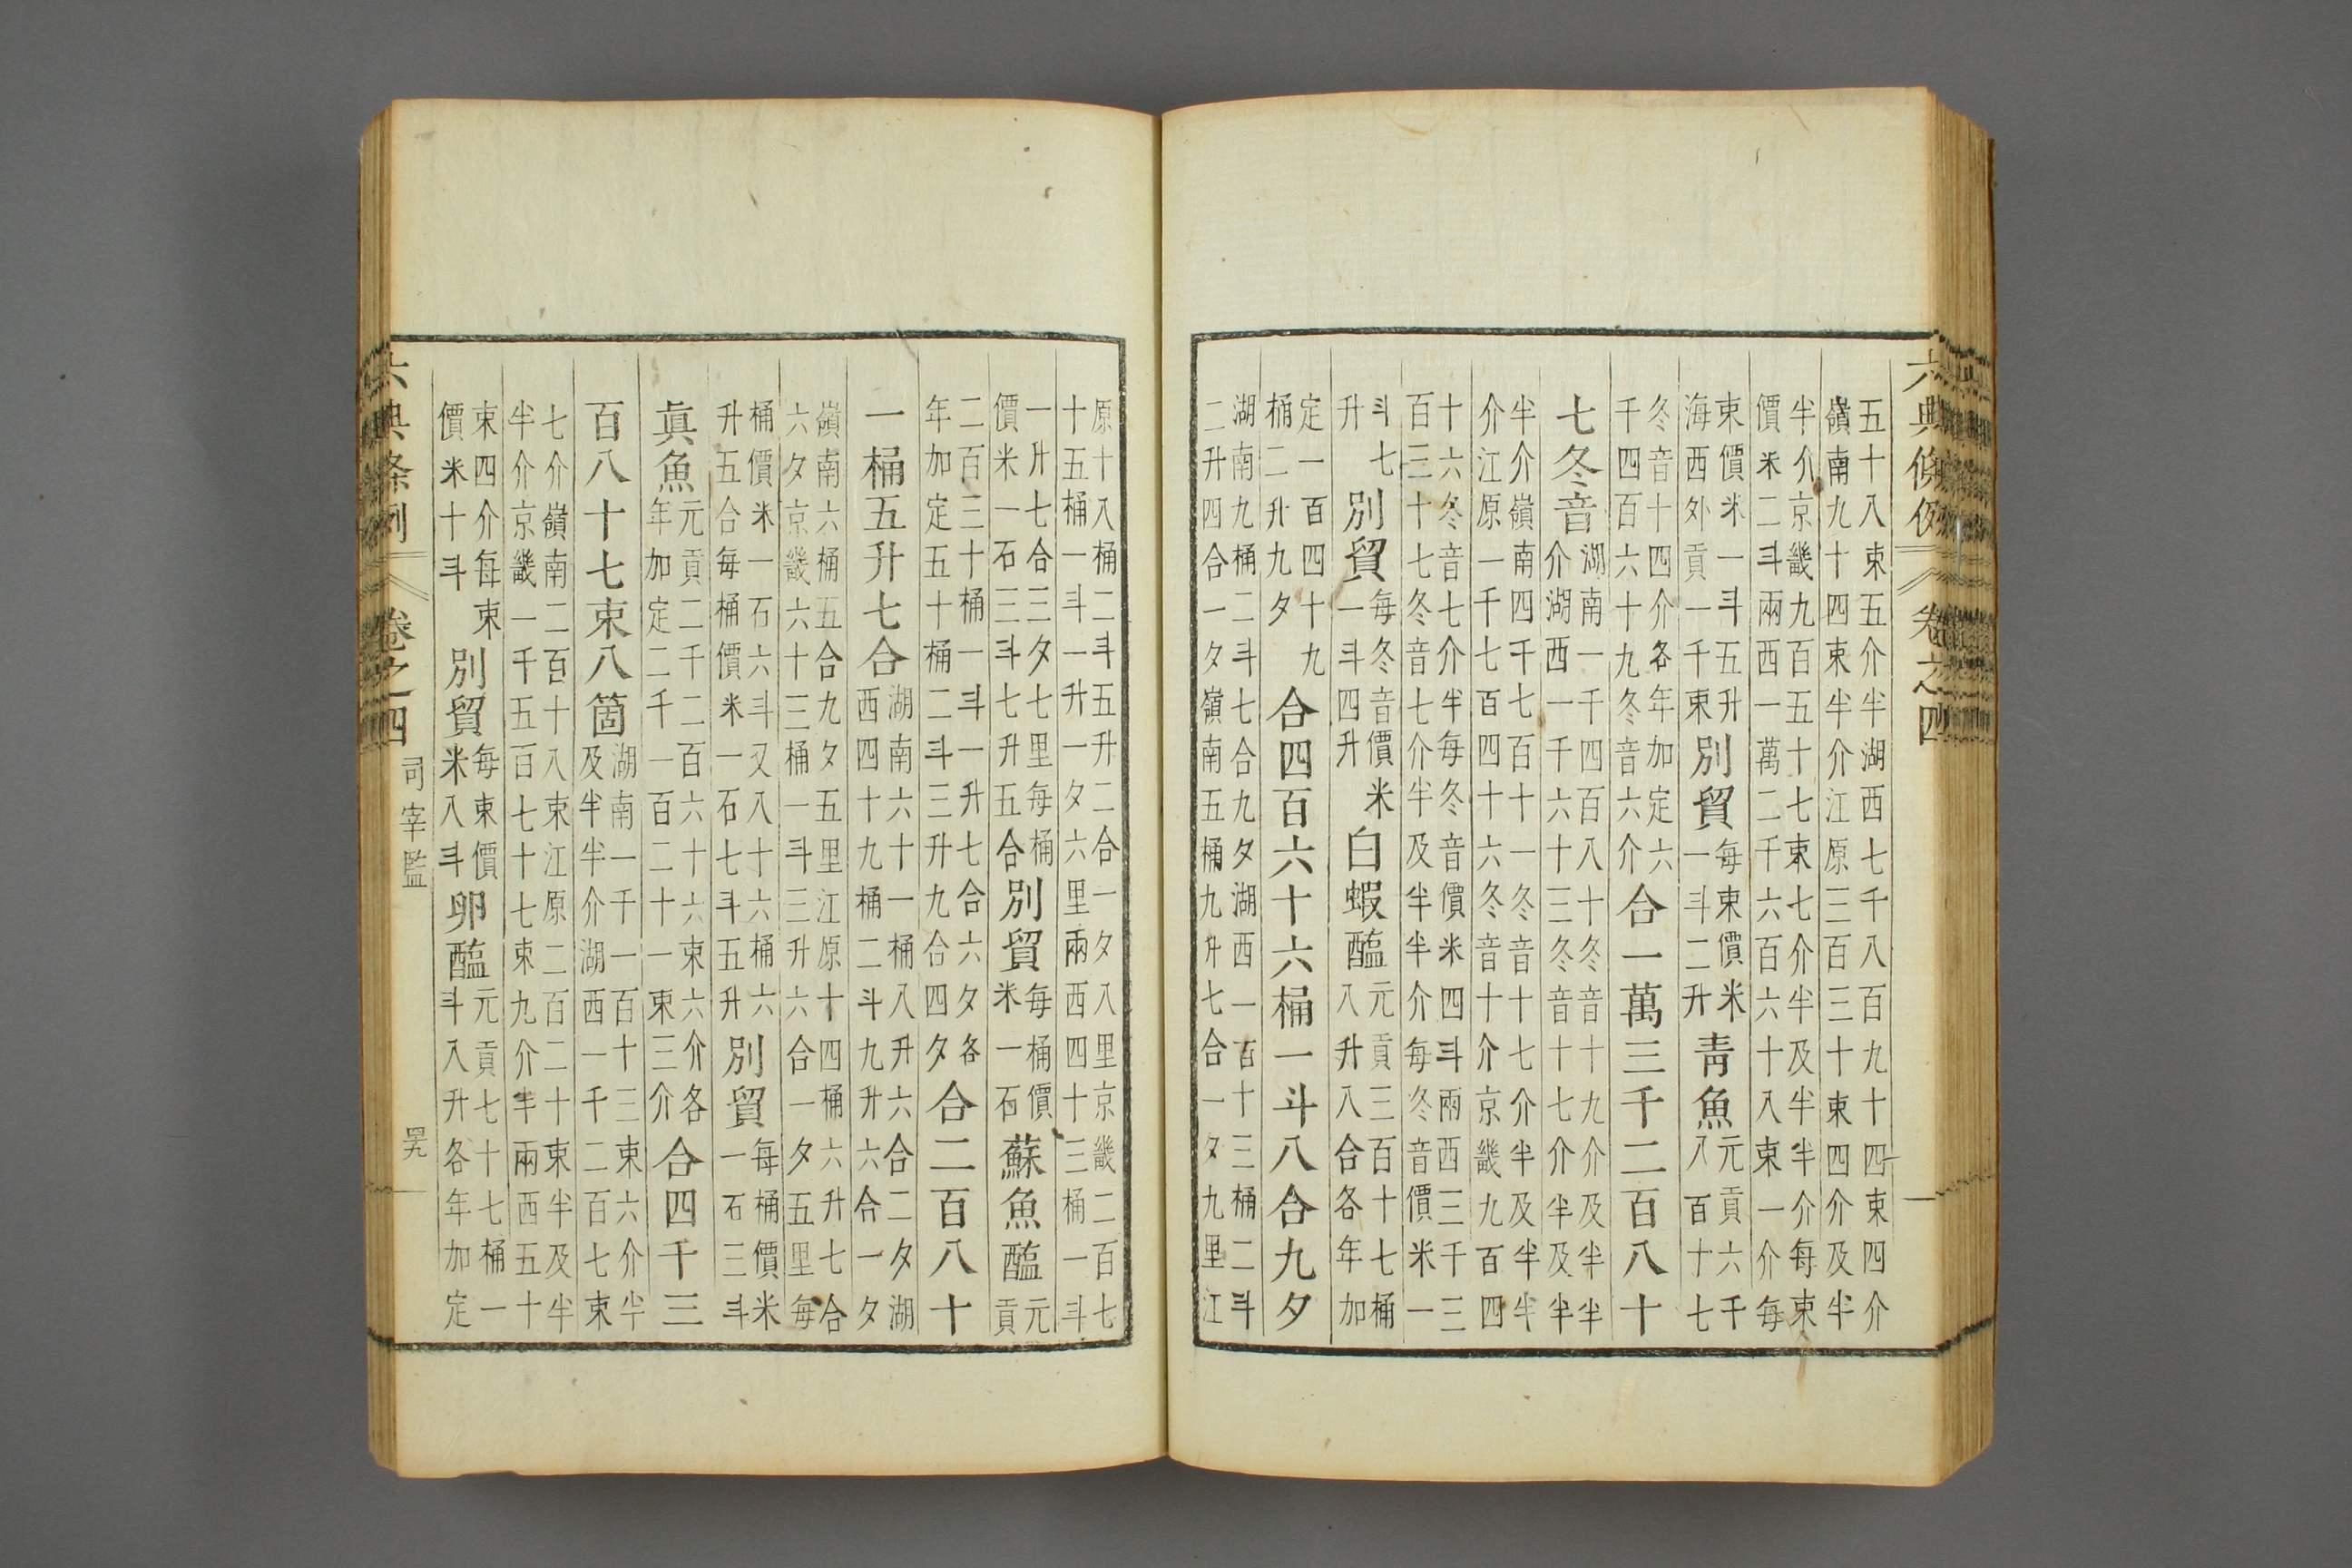 六典條例 卷之四
五十八束五介半湖西七千八百九十四束四介
嶺南九十四束半介江原三百三十束四介及半
半介京畿九百五十七束七介半及半半介每束
價米二斗兩西一萬二千六百六十八束一介每
束價米一斗五升別貿每束價米靑魚元貢六千
海西外貢一千束別貿一斗二升靑魚八百十七
冬音十四介各年加定六合一萬三千二百八十
千四百六十九冬音六介
七冬音湖南一千四百八十冬音十九介及半半
介湖西一千六十三冬音十七介半及半
半介嶺南四千七百十一冬音十七介半及半半
介江原一千七百四十六冬音十介京畿九百四
十六冬音七介半每冬音價米四斗兩西三千三
百三十七冬音七介半及半半介每冬音價米一
斗七別貿每冬音價米白蝦醢元貢三百十七桶
升別貿一斗四升白蝦醢八升八合各年加
定一百四十九合四百六十六桶一斗八合九夕
桶二升九夕
湖南九桶二斗七合九夕湖西一百十三桶二斗
二升四合一夕嶺南五桶九升七合一夕九里江
原十八桶二斗五升二合一夕八里京畿二百七
十五桶一斗一升一夕六里兩西四十三桶一斗
一升七合三夕七里每桶別貿每桶價蘇魚醢元
價米一石三斗七升五合別貿米一石蘇魚醢貢
二百三十桶一斗一升七合六夕各合二百八十
年加定五十桶二斗三升九合四夕
一桶五升七合湖南六十一桶八升六合二夕湖
西四十九桶二斗九升六合一夕
嶺南六桶五合九夕五里江原十四桶六升七合
六夕京畿六十三桶一斗三升六合一夕五里每
桶價米一石六斗又八十六桶六別貿每桶價米
升五合每桶價米一石七斗五升別貿一石三斗
眞魚元貢二千二百六十六束六介各合四千三
年加定二千一百二十一束三介
百八十七束八箇湖南一千一百十三束六介半
及半半介湖西一千二百七束
七介嶺南二百十八束江原二百二十束半及半
半介京畿一千五百七十七束九介半兩西五十
束四介每束別貿每束價卵醢元貢七十七桶一
價米十斗別貿米八斗卵醢斗八升各年加定
六典條例 卷之四 司宰監 四九